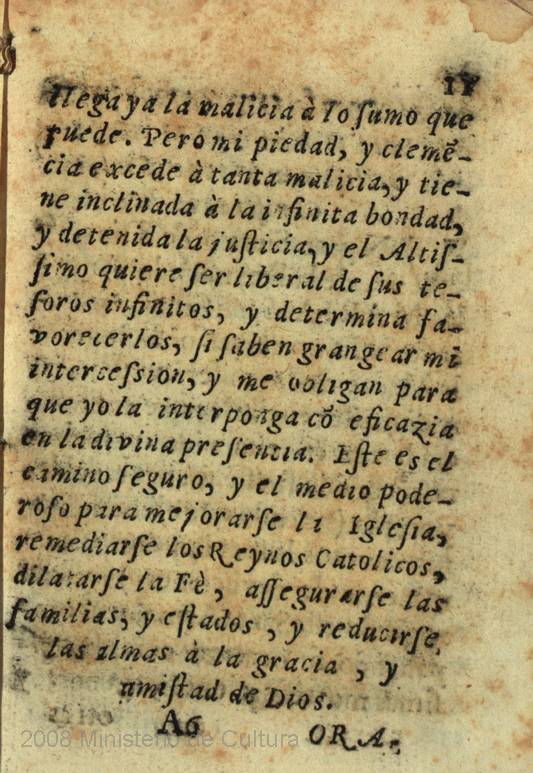 11
llega ya la malicia à lo ſumo que
puede. Pero mi piedad, y clemẽ-
cia excede à tanta malicia, y tie-
ne inclinada à la infinita bondad,
y detenida la juſticia, y el Altiſ-
ſimo quiere ſer liberal de ſus te-
ſoros infinitos, y determina fa-
vorecerlos, ſi ſaben grangear mi
interceſsion, y me obligan para
que yo la interponga cõ eficazia
en la divina preſencia. Eſte es el
camino ſeguro, y el medio pode-
roſo para mejorarſe la Igleſia,
remediarſe los Reynos Catolicos,
dilatarſe la Fè, aſſegurarſe las
familias, y eſtados, y reducirſe
las almas à la gracia, y
amiſtad de Dios.
A6 ORA-
2008 Ministerio de Cultura